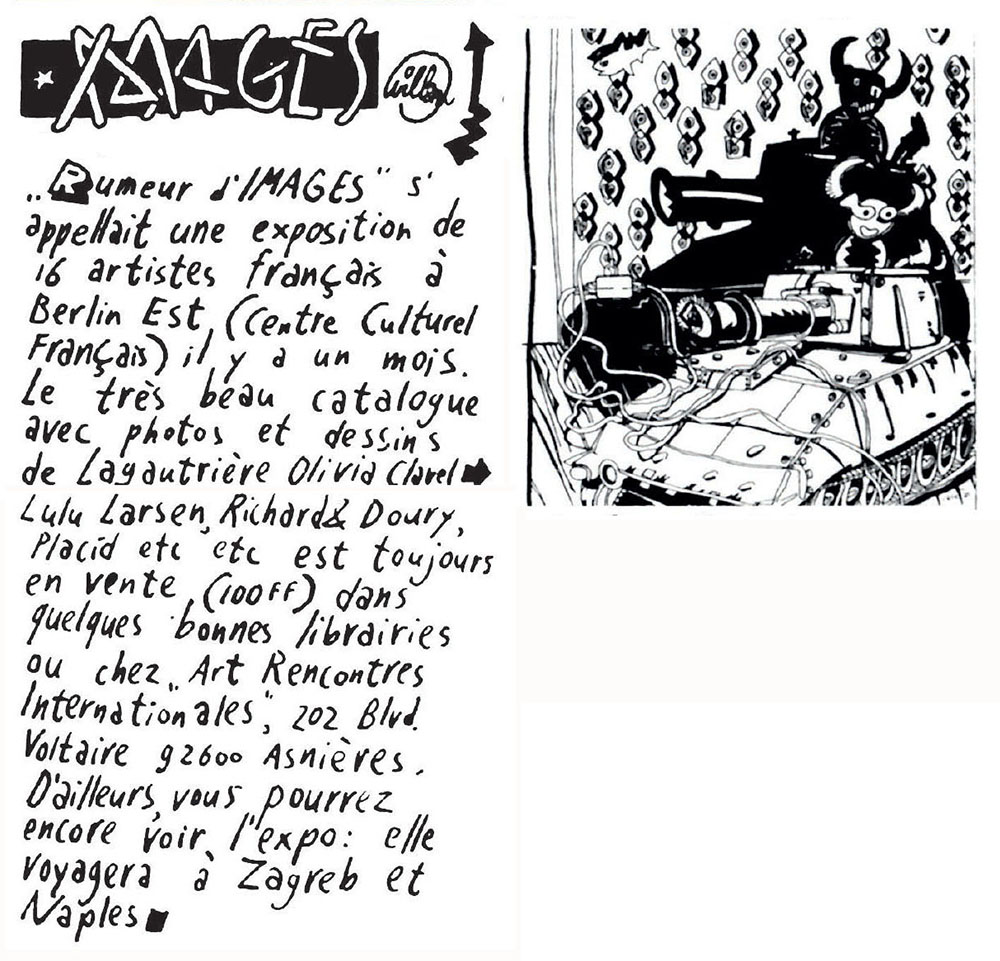 IMAGES
Willem
„Rumeur d'IMAGES" s'
appellait une exposition de
16 artistes français à
Berlin Est, (Centre Culturel
Français) il y a un mois.
Le très beau catalogue
avec photos et dessins
de Lagautrière Olivia Clavel
Lulu Larsen, Richard & Doury,
Placid etc etc est toujours
en vente (100FF) dans
quelques bonnes librairies
ou chez „Art Rencontres
Internationales", 202 Blvd.
Voltaire 92600 Asnières.
D'ailleurs, vous pourrez
encore voir l'expo: elle
voyagera à Zagreb et
Naples